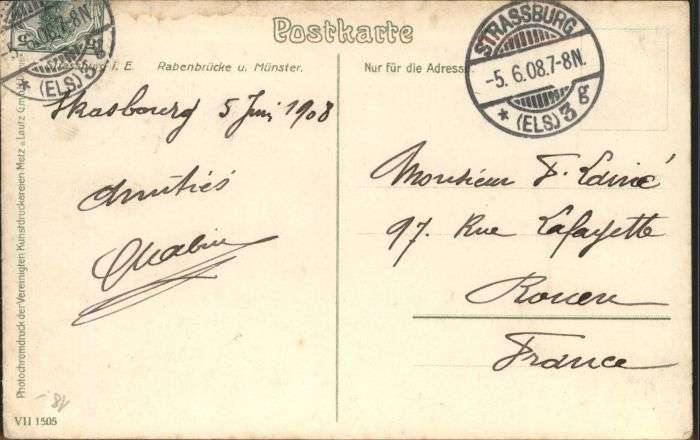 Postkarte
i. E. Rabenbrücke u. Münster.
Nur für die Adresse
STRASSBURG
-5.6.08.7-8N.
* (ELS.) 3 g
5
8N.
* (ELS.) 3 g
Strasbourg 5 Juin 1908
Amitiés
Monsieur F.
97. Rue Lafayette
Rouen
France
Photochromdruck der Vereinigten Kunstdruckereien Metz u. Lautz
VII 1505